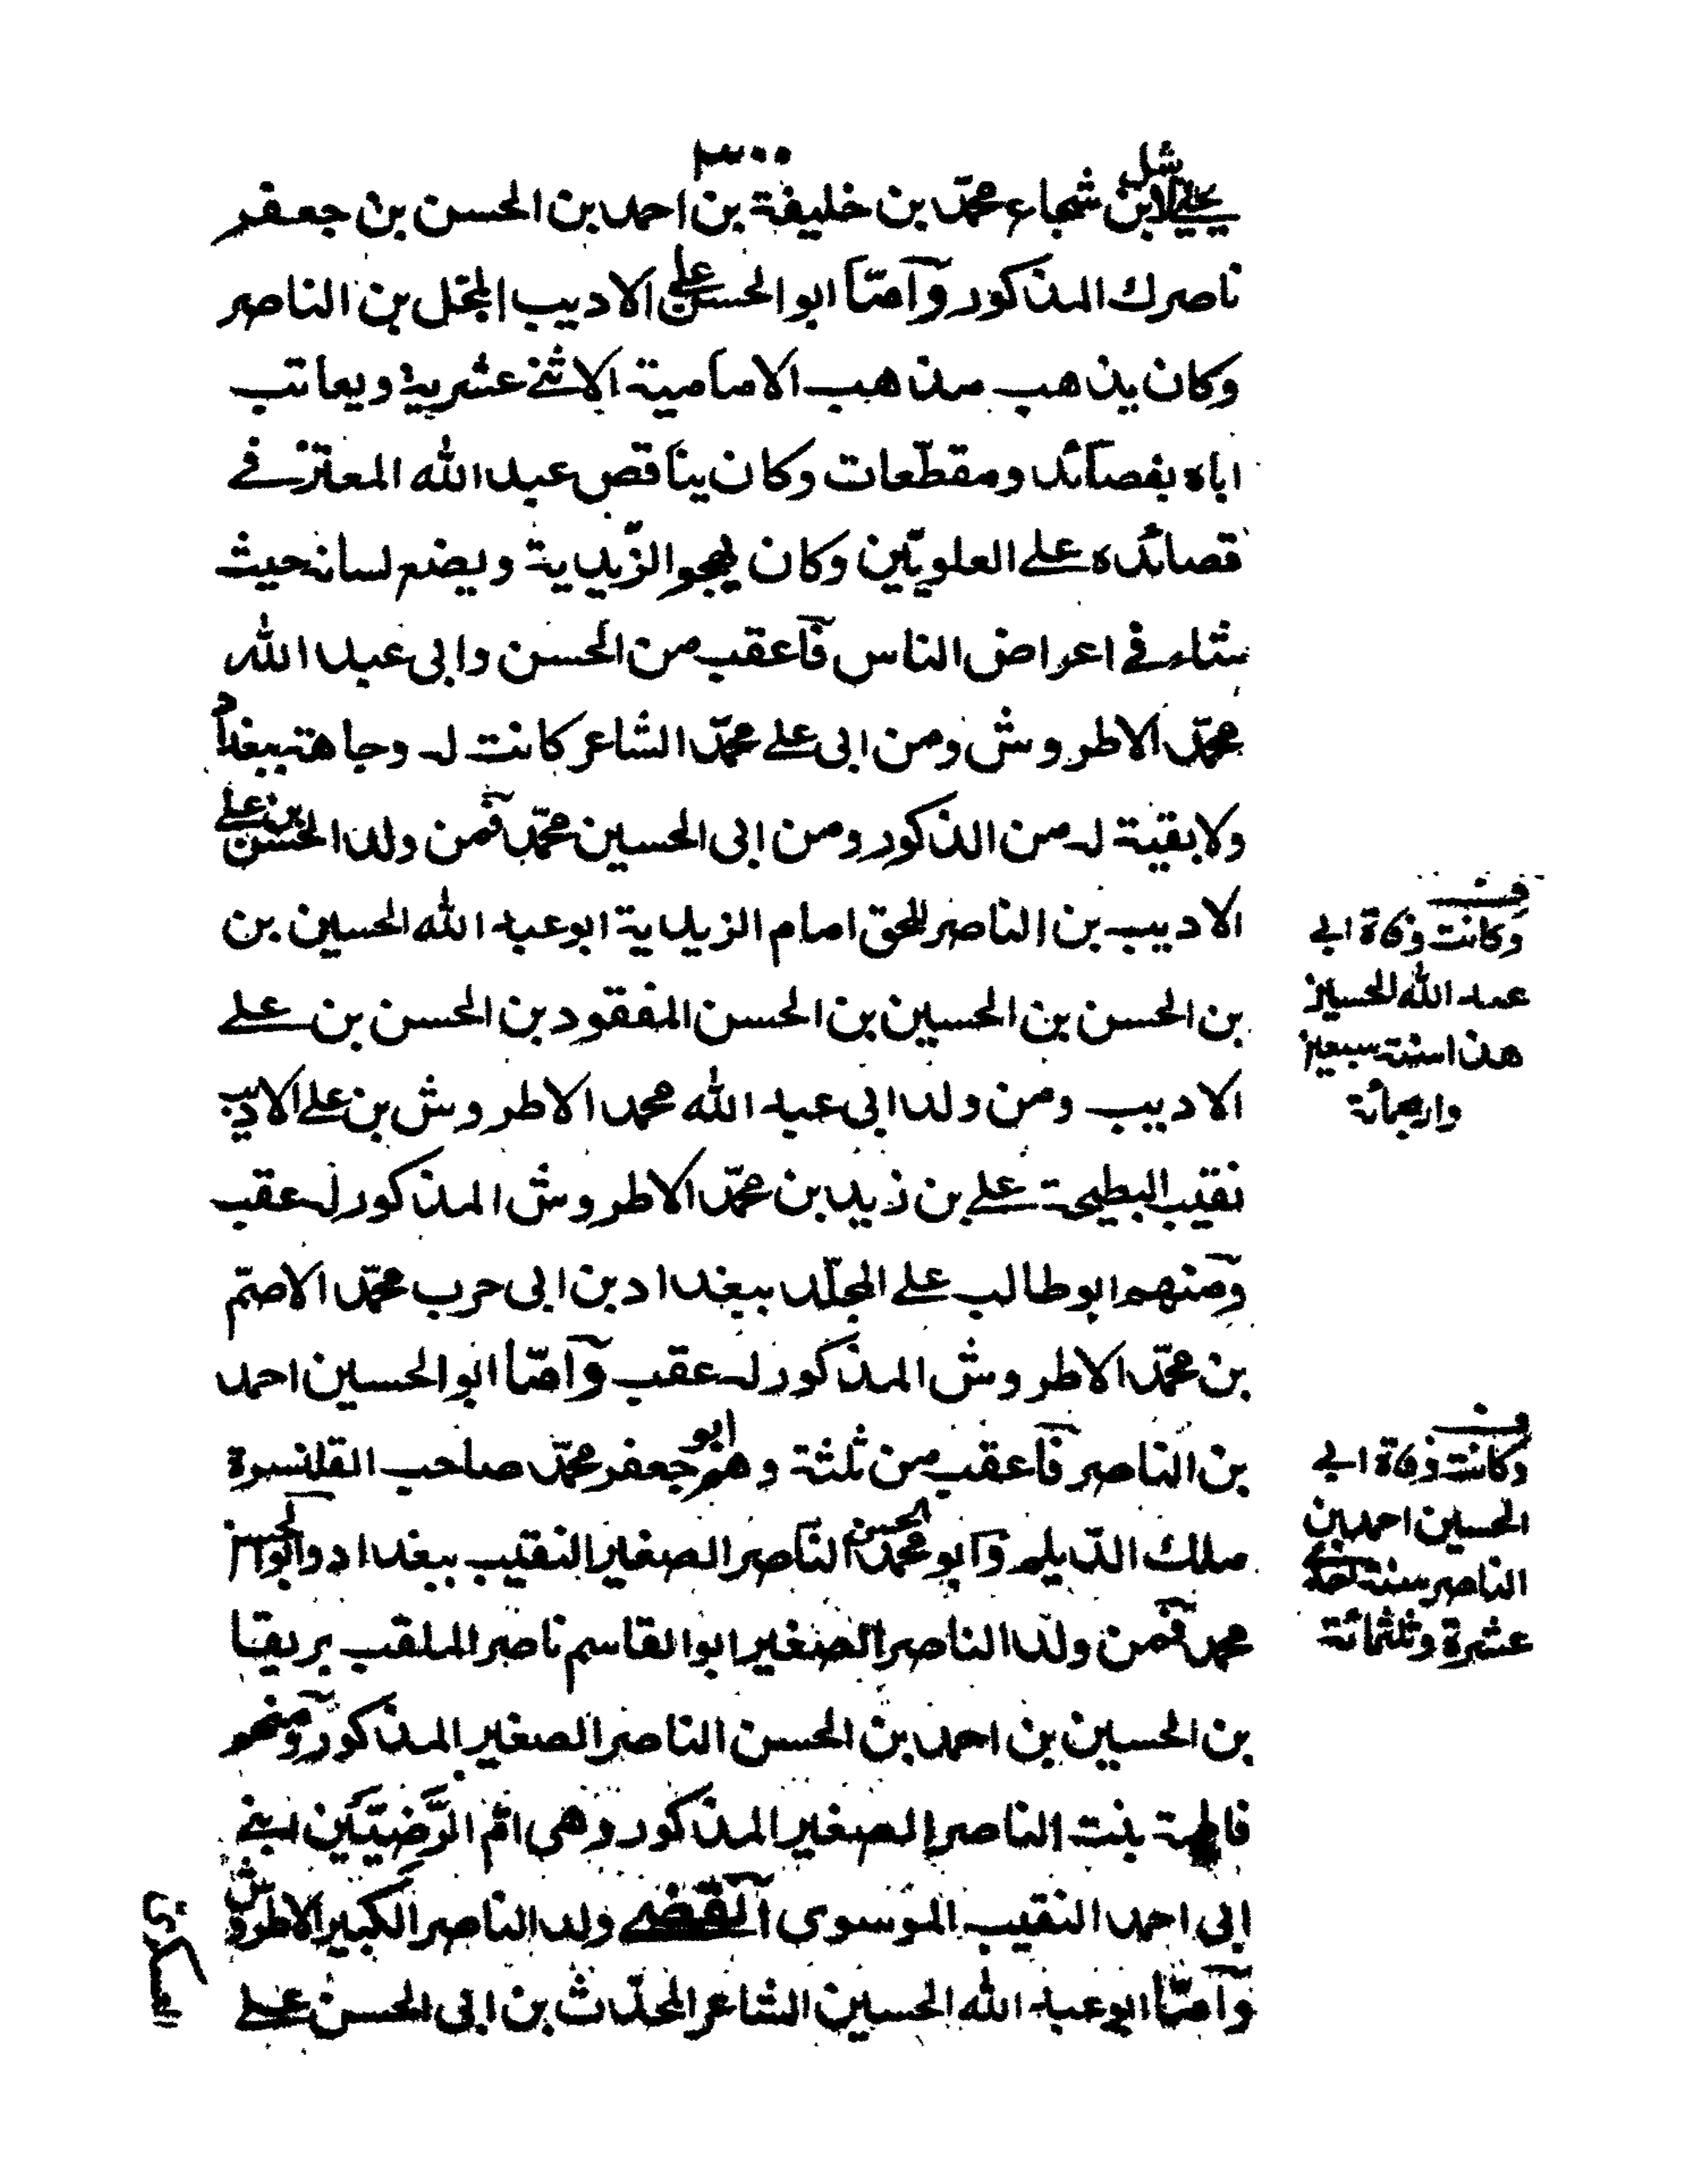 ٣٠٠
شل
يحيى لابن شجاع محمّد بن خليفة بن احمد بن الحسن بن جعفر
ناصرك المذكور وآمّا ابو الحسن علي الاديب المجل بن الناصر
وكان يذهب مذهب الامامية الاثنى عشرية ويعاتب
اباه بقصآئد ومقطّعات وكان يناقص عبد الله المعتز في
قصائده على العلويّين وكان يهجو الزّيدية ويضع لسانه حيث
شاء في اعراض الناس فآعقب من الحسن وابى عبد الله
محمّد الاطروش ومن ابى على محمّد الشاعر كانت له وجاهة ببغداد
ولا بقية له من الذكور ومن ابى الحسين محمّد فمن ولد الحسن بن على
الاديب بن الناصر للحق امام الزيدية ابو عبد الله الحسين بن
بن الحسن بن الحسين بن الحسن المفقود بن الحسن بن على
الاديب ومن ولد ابى عبد الله محمد الاطروش بن على الاديب
نقيب البطيحة على بن زيد بن محمّد الاطروش المذكور له عقب
ومنهم ابو طالب على المجلّد ببغداد بن ابى حرب محمّد الاصمّ
بن محمّد الاطروش المذكور له عقب وآمّا ابو الحسين احمد
بن الناصر فآعقب من ثلثة وهم ابو جعفر محمّد صاحب القلنسرة
ملك الدّيلم وآبو محمد الحسن الناصر الصغير النقيب ببغداد وابو الحسن
محمد فمن ولد الناصر الصغير ابو القاسم ناصر الملقب بريقا
بن الحسين بن احمد بن الحسن الناصر الصغير المذكور ومنهم
فاطمة بنت الناصر الصغير المذكور وهى امّ الرّضيّين ابنى
ابى احمد النقيب الموسوى آنقضى ولد الناصر الكبير الاطروش
وآمّا ابو عبد الله الحسين الشاعر المحدّث بن ابى الحسن على
العسكرى
وكانت وفاة ابى
عبد الله الحسين
هذا سنة سبعين
واربعمائة
وكانت وفاة ابى
الحسين احمد بن
الناصر سنة احدى
عشرة وثلثمائة